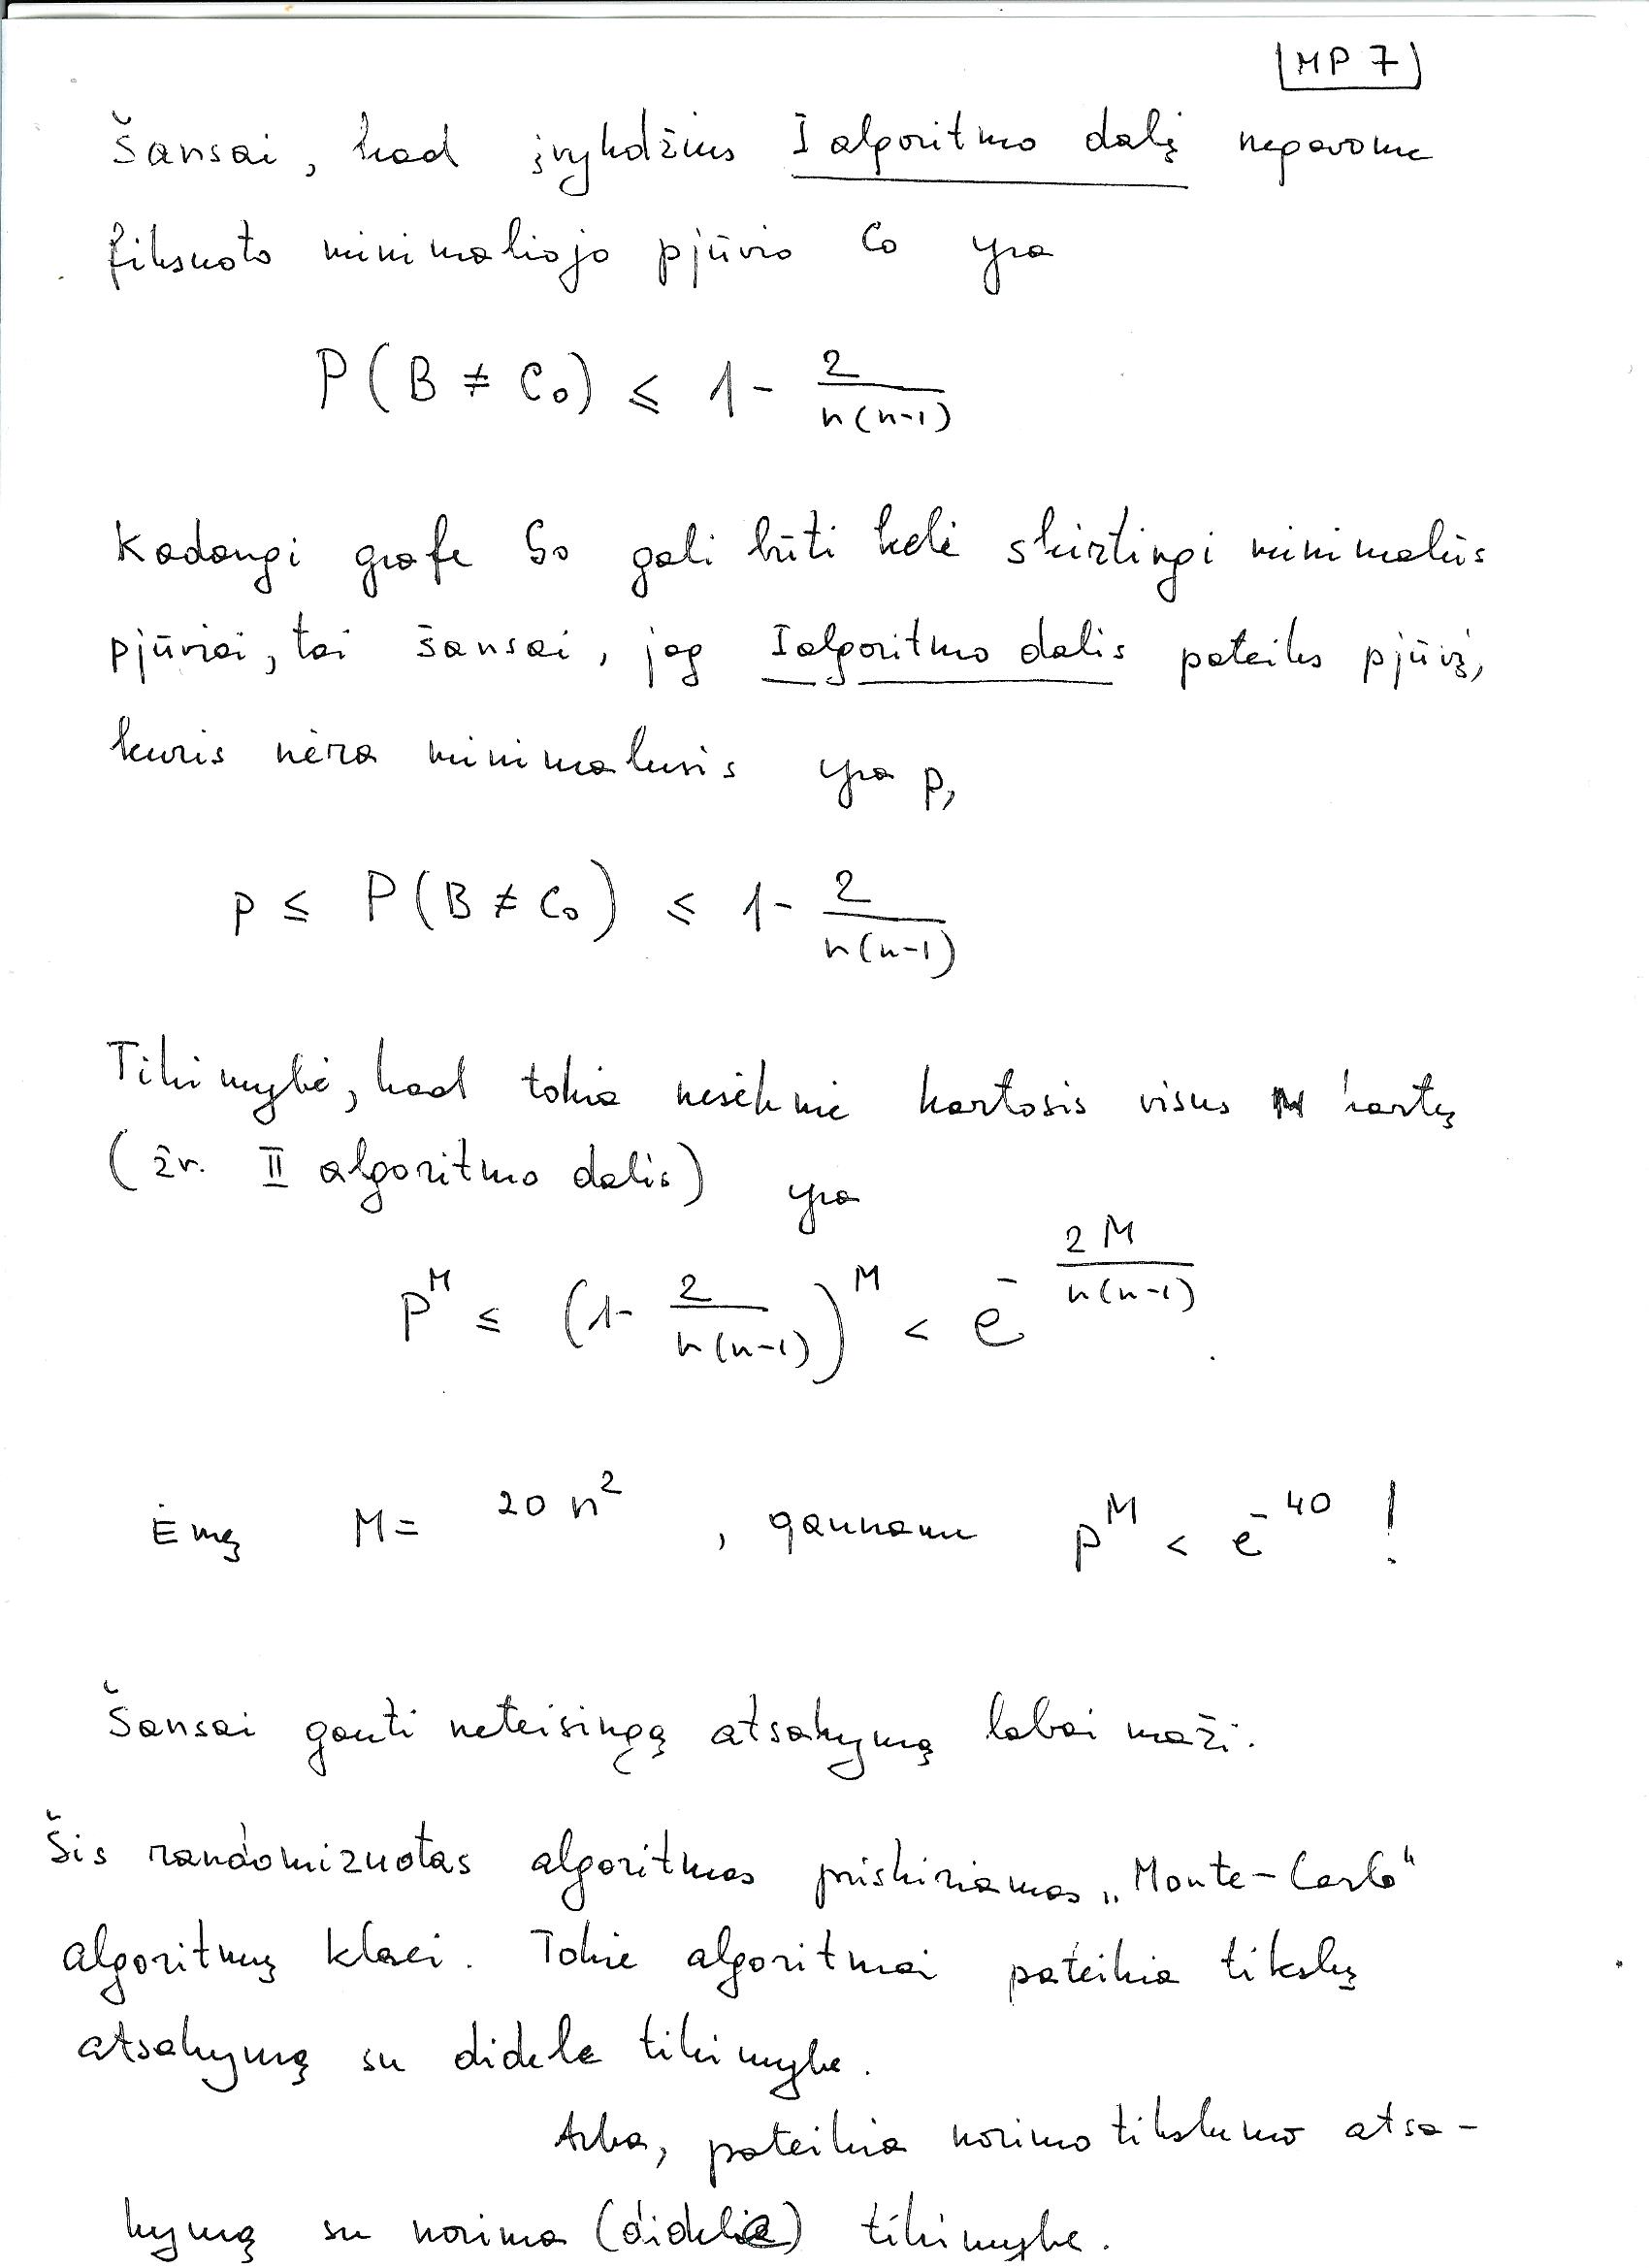 MP 7
Šansai, kad įvykdžius I algoritmo dalį negavome
fiksuoto minimaliojo pjūvio C₀ yra
P(B ≠ C₀) ≤ 1 - 2/(n(n-1))
Kadangi grafe G₀ gali būti keli skirtingi minimalūs
pjūviai, tai šansai, jog I algoritmo dalis pateiks pjūvį,
kuris nėra minimalusis yra p,
p ≤ P(B ≠ C₀) ≤ 1 - 2/(n(n-1))
Tikimybė, kad tokia nesėkmė kartosis visus M kartų
(žr. II algoritmo dalis) yra
p^M ≤ (1 - 2/(n(n-1)))^M < e^(-2M/(n(n-1))).
Ėmę M = 20 n², gauname p^M < e^(-40) !
Šansai gauti neteisingą atsakymą labai maži.
Šis randomizuotas algoritmas priskiriamas „Monte-Carlo"
algoritmų klasei. Tokie algoritmai pateikia tikslų
atsakymą su didele tikimybe.
Arba, pateikia norimo tikslumo atsa-
kymą su norima (didele) tikimybe.